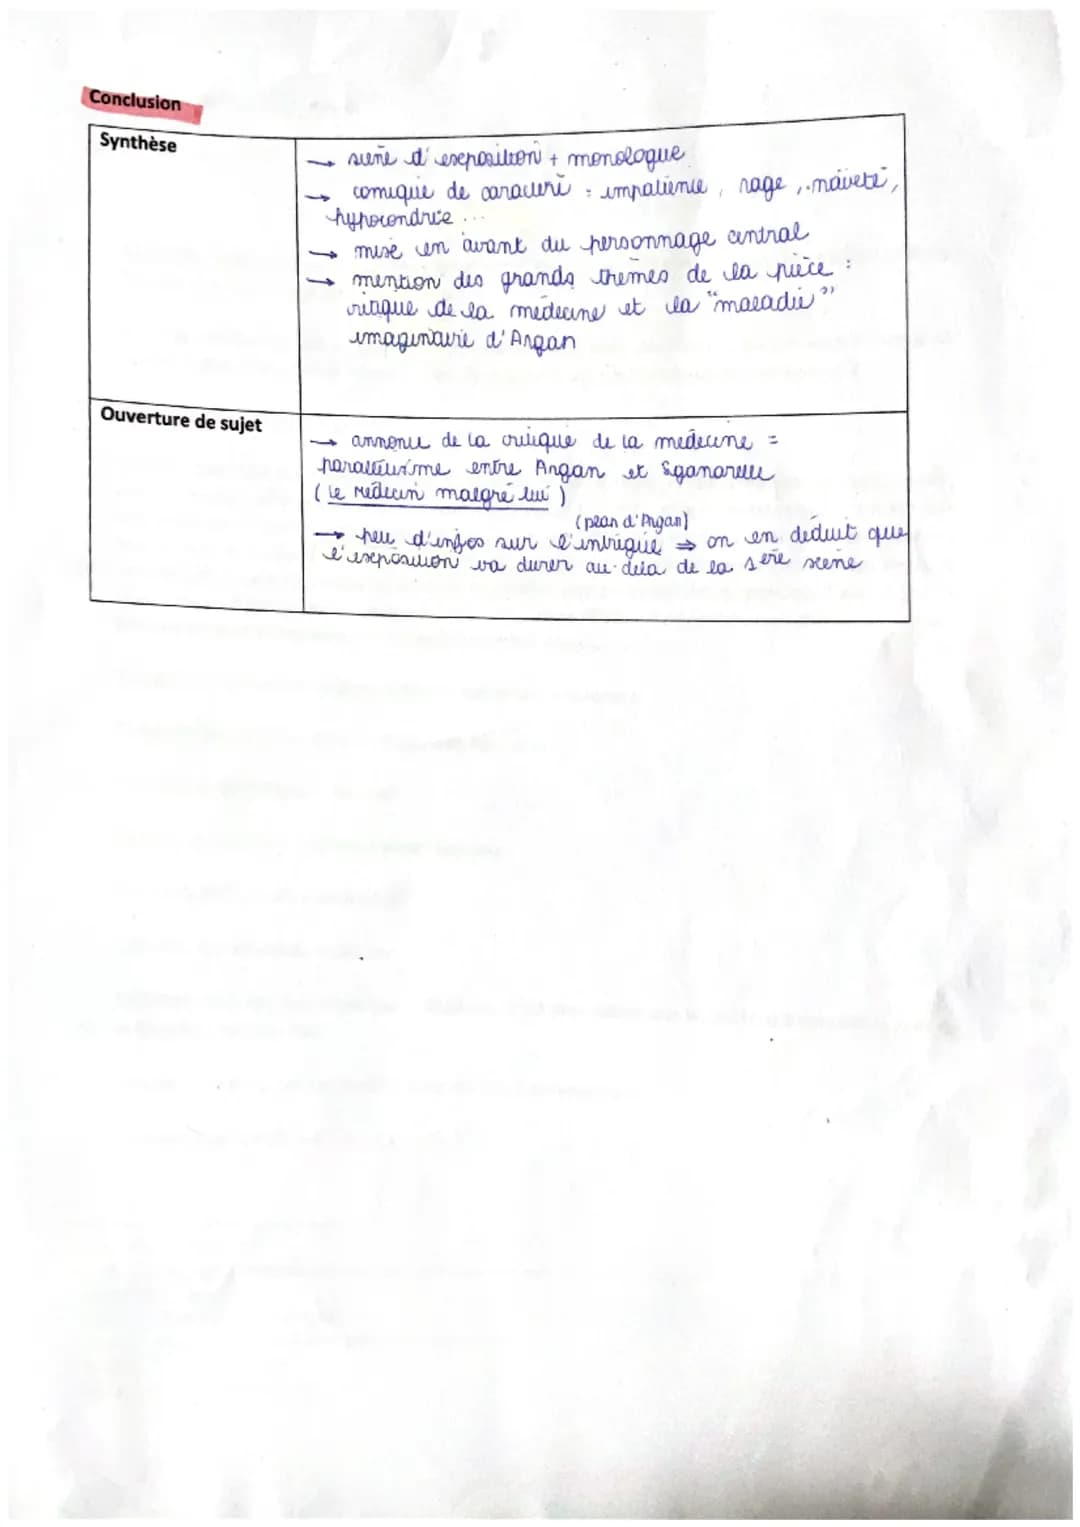 Conclusion
Synthèse
→ scène d'exposition + monologue
→ comique de caractère : impatience, rage, naïveté,
hypocondrie ...
→ mise en avant du personnage central
→ mention des grands thèmes de la pièce :
critique de la médecine et la "maladie"
imaginaire d'Argan
Ouverture de sujet
→ annonce de la critique de la médecine =
parallélisme entre Argan et Sganarelle
(Le Médecin malgré lui)
(plan d'Argan)
→ peu d'infos sur l'intrigue ⇒ on en déduit que
l'exposition va durer au-delà de la 1ère scène